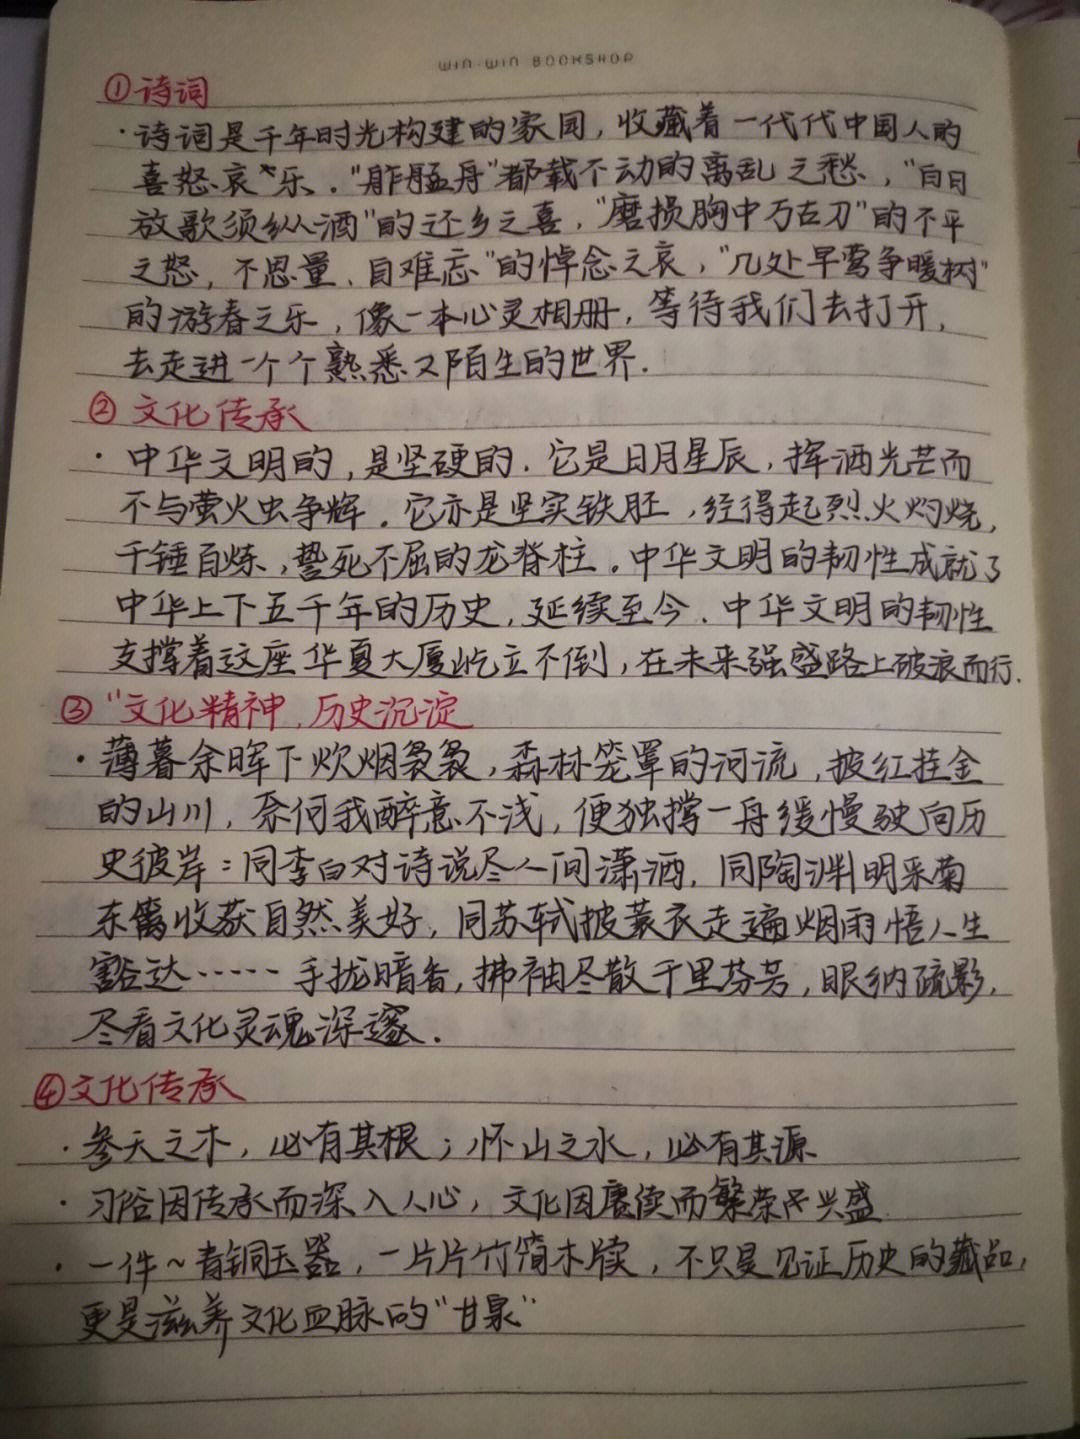 WIN-WIN BOOKSHOP
①诗词
·诗词是千年时光构建的家园，收藏着一代代中国人的
喜怒哀乐．"舴艋舟"都载不动的离乱之愁，"白日
放歌须纵酒"的还乡之喜，"磨损胸中万古刀"的不平
之怒，不思量、自难忘"的悼念之哀，"几处早莺争暖树"
的游春之乐，像一本心灵相册，等待我们去打开，
去走进一个个熟悉又陌生的世界．
②文化传承
·中华文明的，是坚硬的．它是日月星辰，挥洒光芒而
不与萤火虫争辉．它亦是坚实铁胚，经得起烈火灼烧，
千锤百炼，誓死不屈的龙脊柱．中华文明的韧性成就了
中华上下五千年的历史，延续至今．中华文明的韧性
支撑着这座华夏大厦屹立不倒，在未来强盛路上破浪而行．
③"文化精神，历史沉淀
·薄暮余晖下炊烟袅袅，森林笼罩的河流，披红挂金
的山川，奈何我醉意不浅，便独撑一舟缓慢驶向历
史彼岸：同李白对诗说尽人间潇洒，同陶渊明采菊
东篱收获自然美好，同苏轼披蓑衣走遍烟雨悟人生
豁达……手拢暗香，拂袖尽散千里芬芳，眼纳疏影，
尽看文化灵魂深邃．
④文化传承
·参天之木，必有其根；怀山之水，必有其源
·习俗因传承而深入人心，文化因赓续而繁荣兴盛
·一件~青铜玉器，一片片竹简木牍，不只是见证历史的藏品，
更是滋养文化血脉的"甘泉"